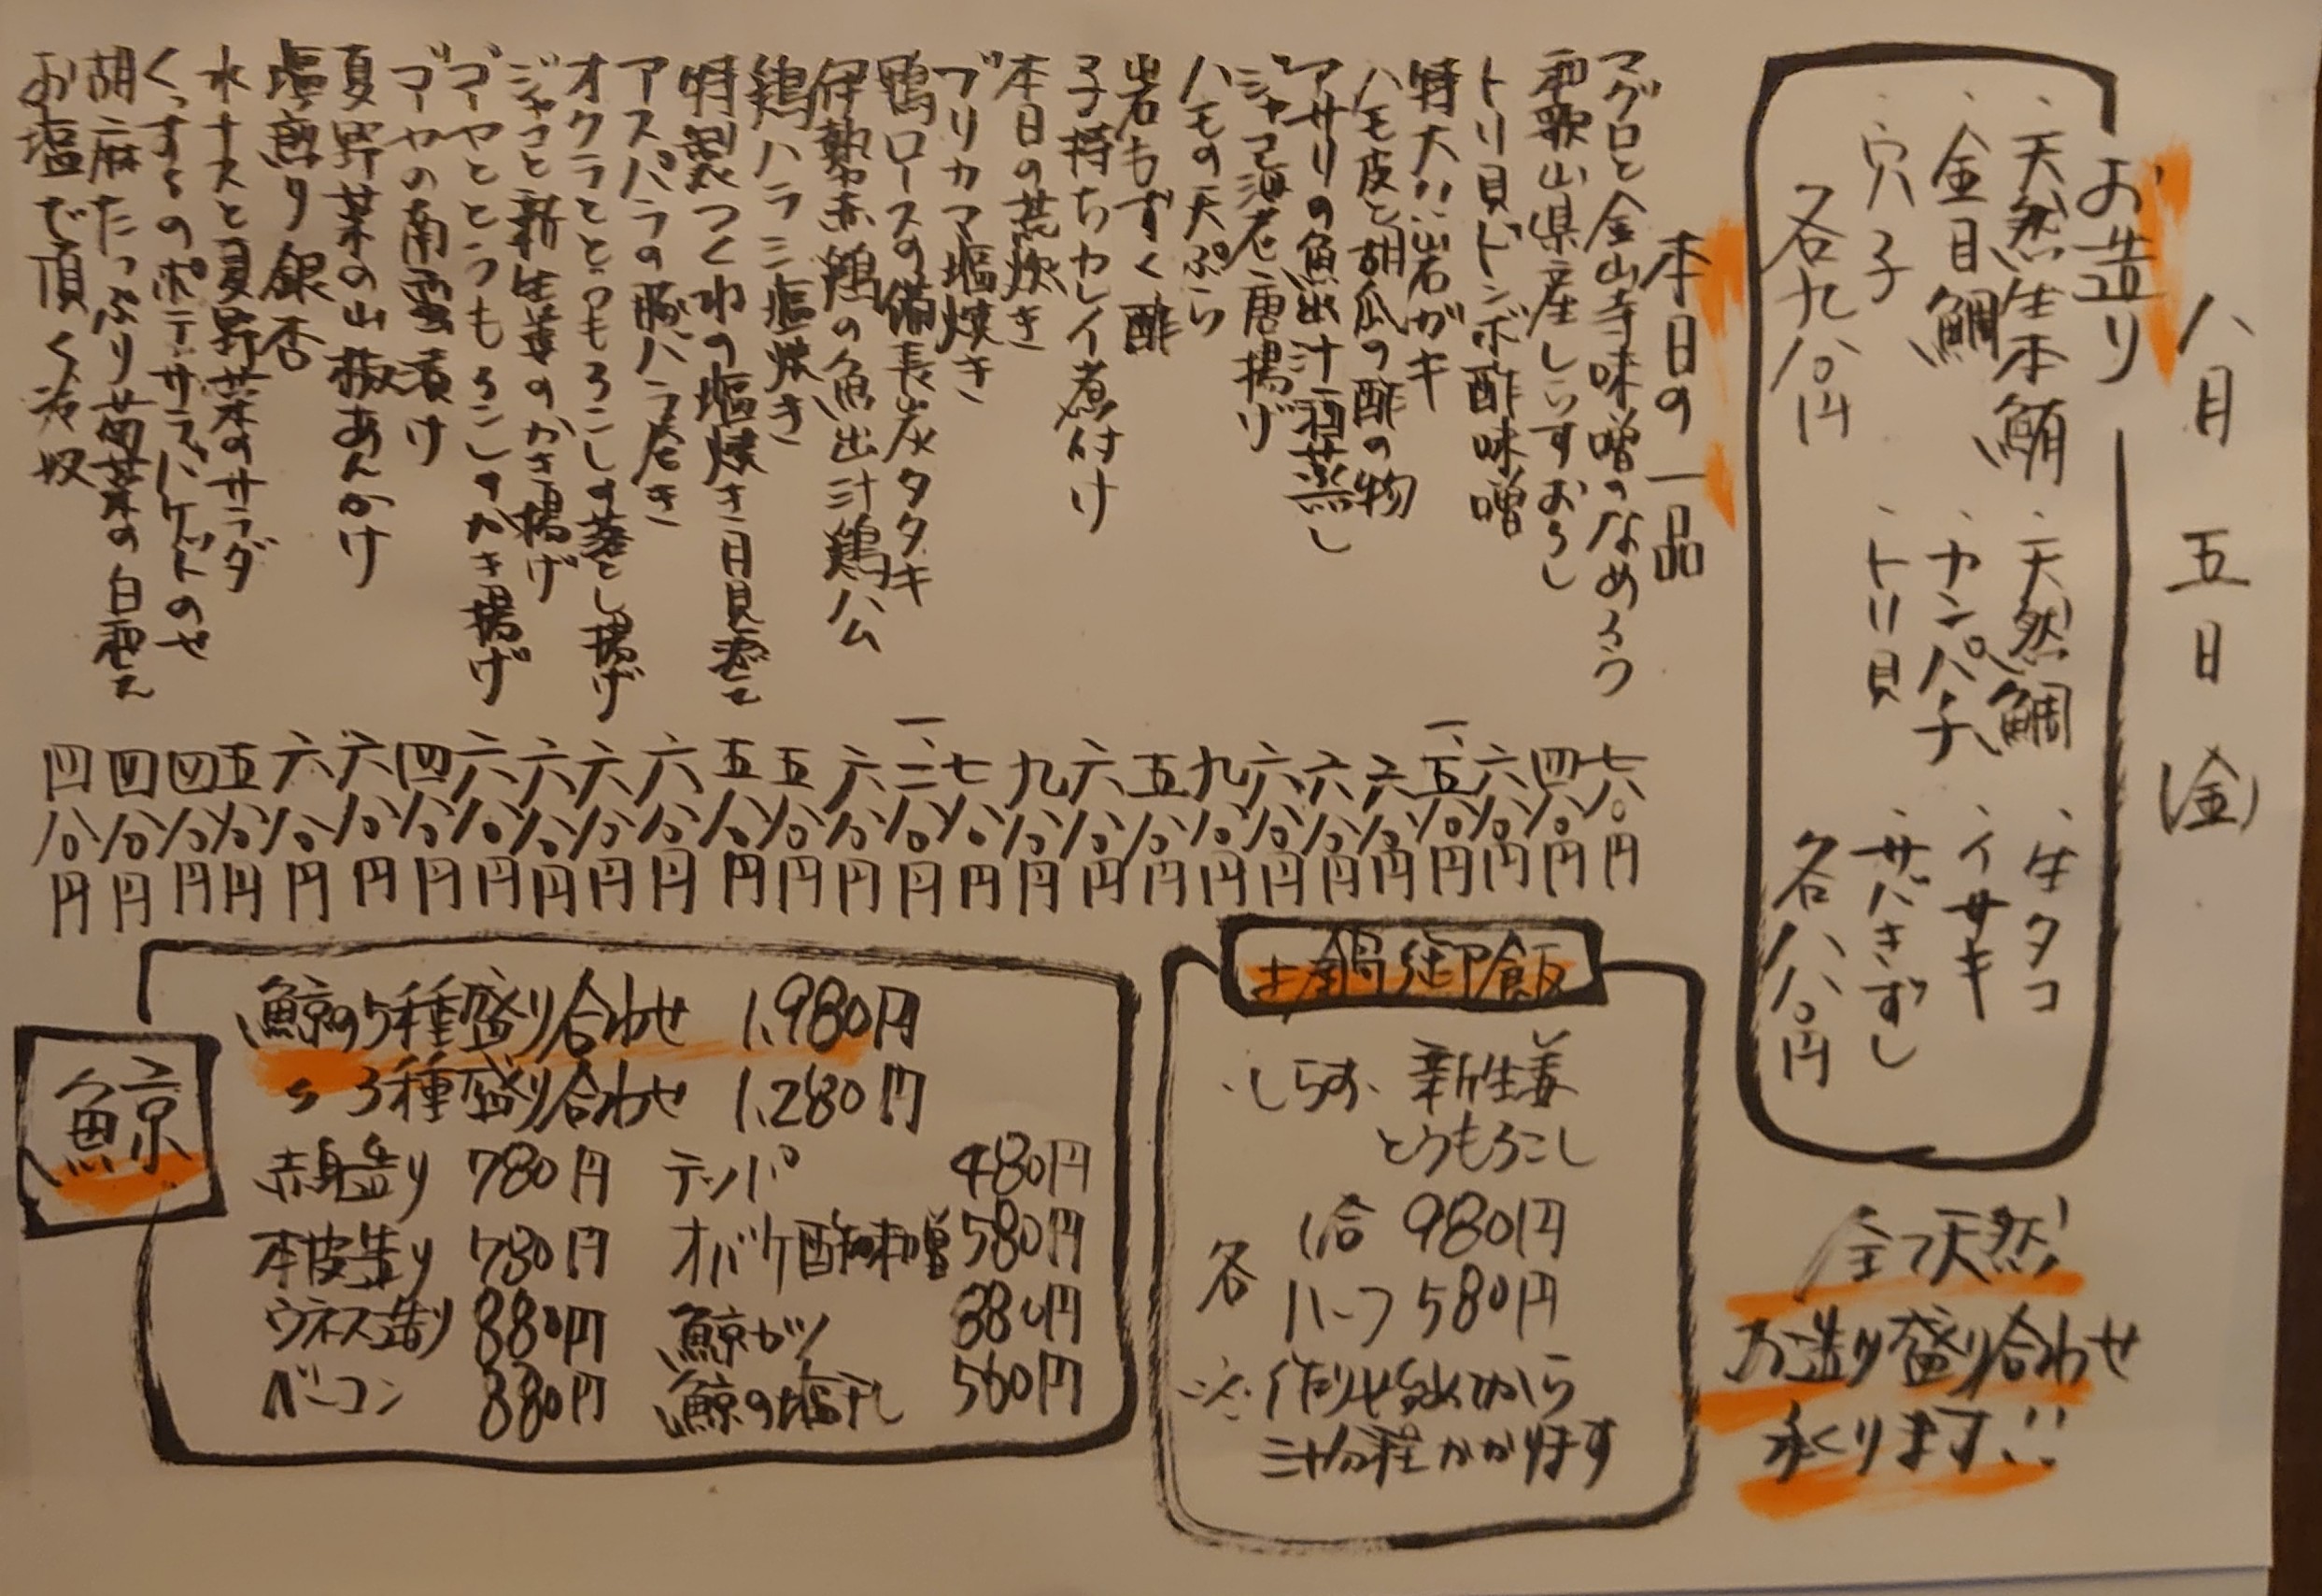 八月五日(金)
お造り
・天然生本鮪 ・天然鯛 ・生タコ
・金目鯛 ・カンパチ ・イサキ
・穴子 ・トリ貝 ・サバきずし
各九八〇円 各八八〇円
全て天然!
お造り盛り合わせ
承ります!!
本日の一品
マグロと金山寺味噌のなめろう 七八〇円
和歌山県産しらすおろし 四八〇円
トリ貝ドンボ酢味噌 六八〇円
特大!!岩ガキ 一、五八〇円
ハモ皮と胡瓜の酢の物 六八〇円
アサリの魚出汁酒蒸し 六八〇円
ジャコ海老唐揚げ 六八〇円
ハモの天ぷら 九八〇円
岩もずく酢 五八〇円
子持ちカレイ煮付け 六八〇円
本日の荒炊き 九八〇円
ブリカマ塩焼き 七八〇円
鴨ロースの備長炭タタキ 一、二八〇円
伊勢赤鶏の魚出汁鶏ハム 六八〇円
鶏ハラミ塩焼き 五八〇円
特製つくねの塩焼き 月見添え 五八〇円
アスパラの豚バラ巻き 六八〇円
オクラととうもろこしの落とし揚げ 六八〇円
ジャコと新生姜のかき揚げ 六八〇円
ゴーヤととうもろこしのかき揚げ 六八〇円
ゴーヤの南蛮漬け 四八〇円
夏野菜の山椒あんかけ 六八〇円
塩煎り銀杏 六八〇円
水ナスと夏野菜のサラダ 五八〇円
くっすんのポテサラ バケットのせ 四八〇円
胡麻たっぷり 菊菜の白和え 四八〇円
お塩で頂く冷奴 四八〇円
土鍋御飯
・しらす・新生姜
とうもろこし
各 1合 980円
ハーフ 580円
※作り始めから
三十分程かかります
鯨
鯨の5種盛り合わせ 1,980円
〃 3種盛り合わせ 1,280円
赤身造り 780円 テッパ 480円
本皮造り 780円 オバケ酢味噌 580円
ウネス造り 880円 鯨カツ 880円
ベーコン 880円 鯨の塩干し 560円